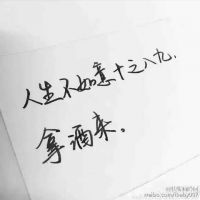 人生不如意十之八九.
拿酒来。
weibo.com/baby007